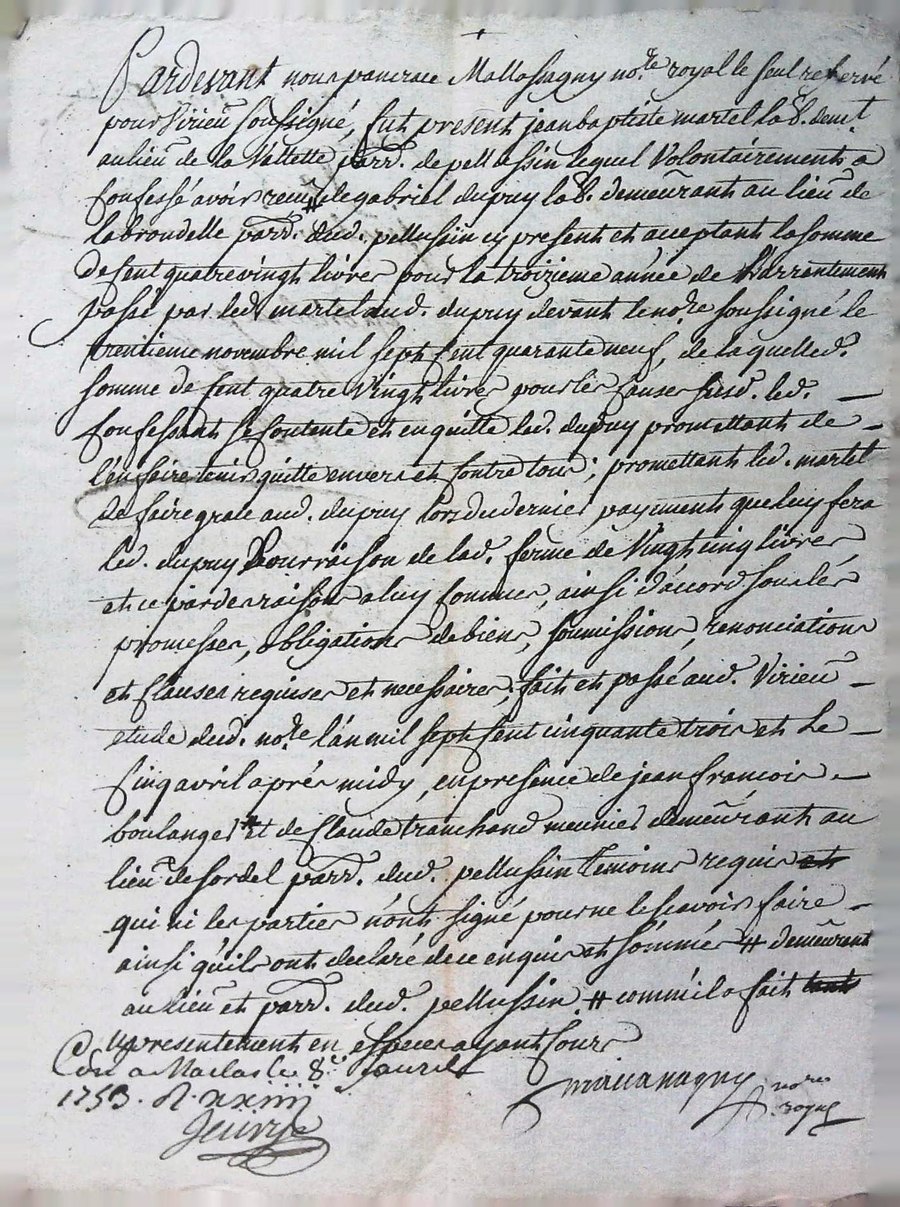 Pardevant nous pancrace Mallassagny no.re royal le seul reservé
pour Virieu soussigné, fut present jean baptiste martel lab.r dem.t
au lieu de la Vallette parr. de pellussin lequel Volontairements a
confessé avoir receu # de gabriel dupuy lab.r demeurant au lieu de
la brondelle parr. dud. pellussin cy present et acceptant la somme
de cent quatre vingt livres pour la troizieme année de l'arrantement
passé par led martel aud. dupuy devant le no.re soussigné le
trentieme novembre mil sept cent quarante neuf, de laquelled.
somme de cent quatre Vingt livres pour les causes susd. led.
confessant se contente et en quitte led. dupuy promettant de
l'en faire tenir quitte envers et contre tous; promettant led. martel
de faire grace aud. dupuy lors du dernier payements que luy fera
led. dupuy pour raison de lad. ferme de Vingt cinq livres
et ce par des raisons a luy connues, ainsi d'acord sous les
promesses, obligations de biens, soumissions, renonciations
et clauses requises et necessaires; fait et passé aud. Virieu
etude dud. no.re l'an mil sept cent cinquante trois et le
cinq avril après midy, en presence de jean francois
boulanger # et de Claude tranchand meunier demeurant au
lieu de sordel parr. dud. pellussin temoins requis et
qui ni les parties n'ont signé pour ne le scavoir faire
ainsi qu'ils ont declaré de ce enquis et sommés # demeurant
au lieu et parr. dud. pellussin # comm'il a fait
presentement en especes ayant cours
Con a Maclas le 8.e avril
1753. R. xxiiii
no.re
royal